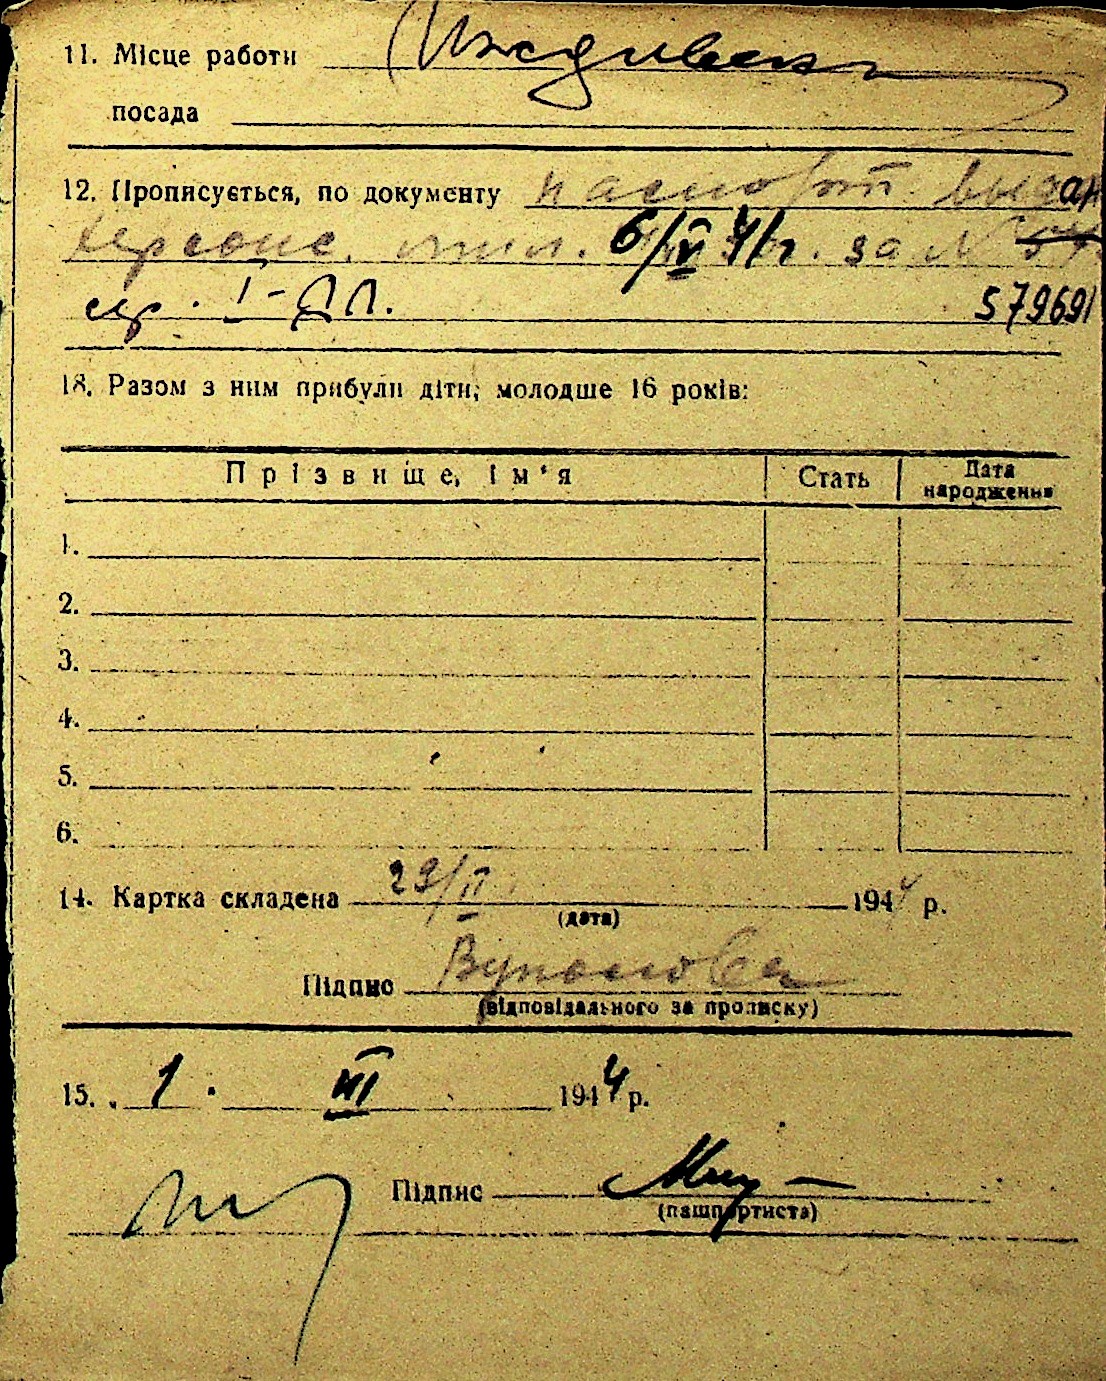 11. Місце работи Иждивен
посада
12. Прописується, по документу паспорт выдан
Херсонс. мил. 6/VI 41г. за №
сер. I-ДЛ. 579691
13. Разом з ним прибули діти, молодше 16 років:
Прізвище, ім'я Стать Дата народження
1.
2.
3.
4.
5.
6.
14. Картка складена 29/II 1944 р.
(дата)
Підпис
(відповідального за прописку)
15. 1. III 1944 р.
Підпис
(пашпортиста)